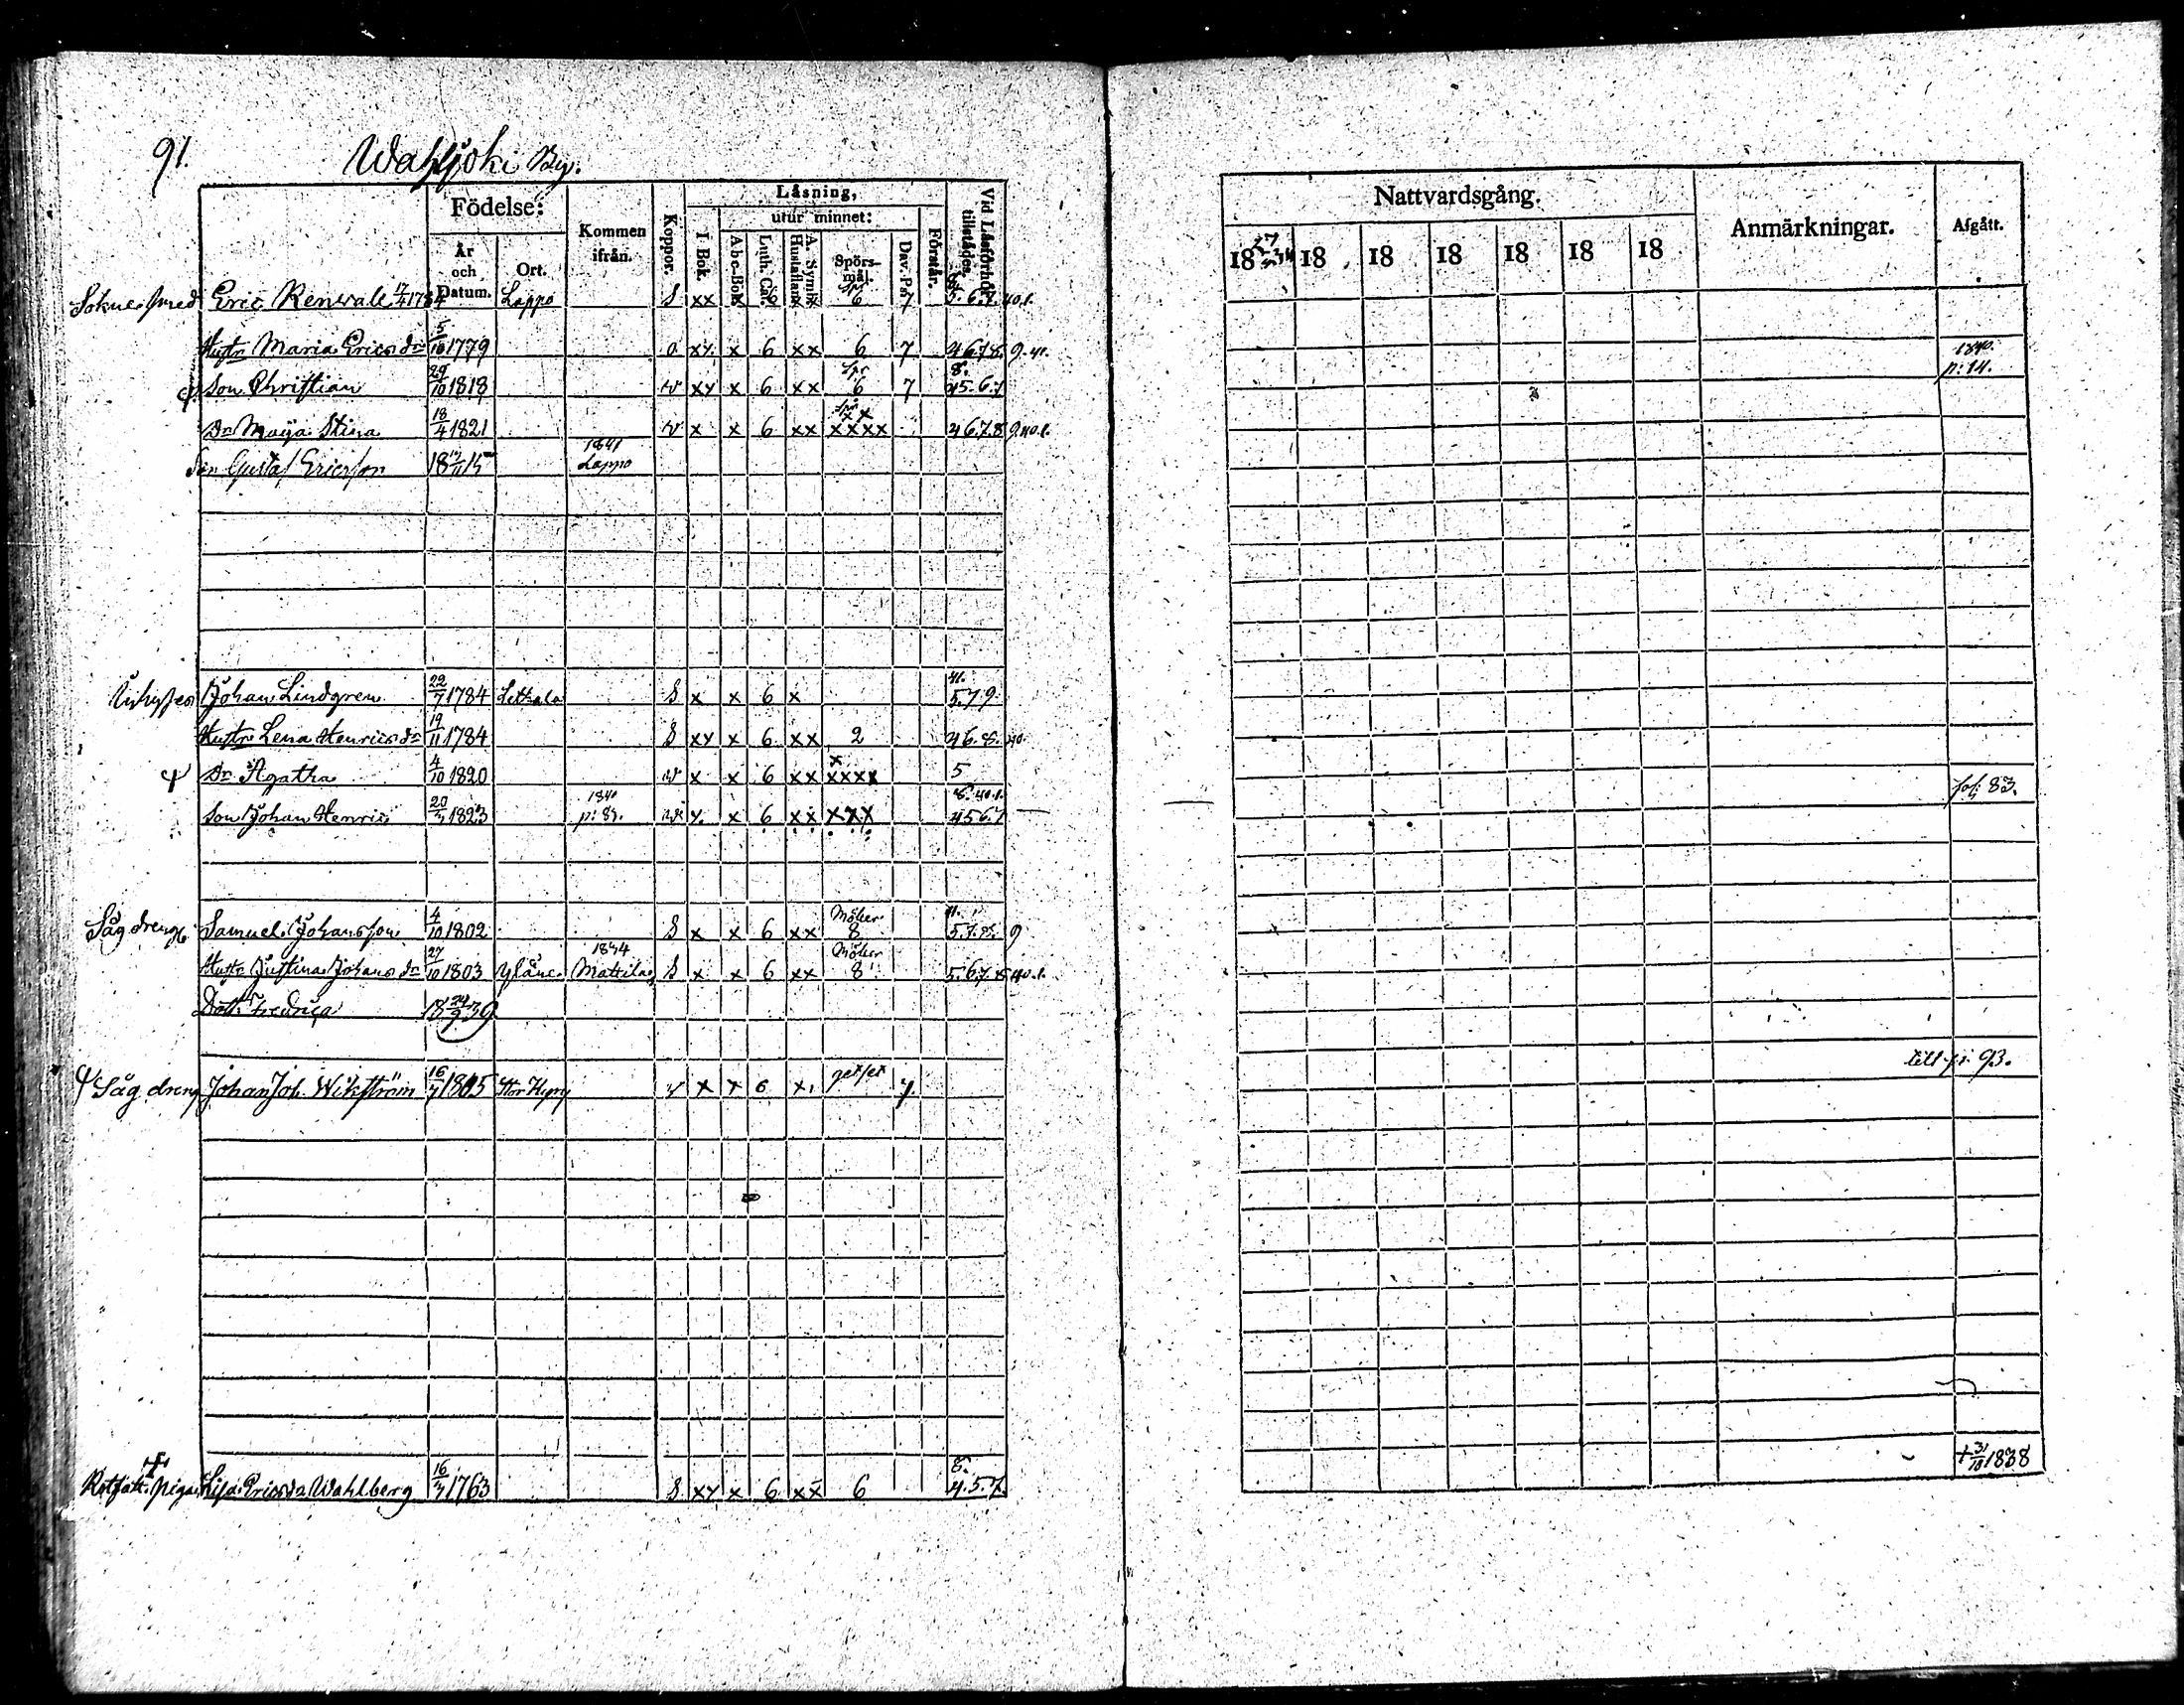 91. Wahojoki By.
Födelse: År och Datum. Ort. Kommen ifrån. Koppor. Läsning, I Bok. utur minnet: Abc-Bok. Luth. Cat. A. Symb. Hustaflan. Spörs-mål. Dav. Ps. Förstår. Vid Läsförhör tillstädes.
Nattvardsgång. 18 18 18 18 18 18 18 Anmärkningar. Afgått.
Eric Renvall 17/4 1784 Lappo S xx 6 7
Hustr Maria Ericsdr 5/10 1779 o xx x 6 xx 6 7 4 6.7.8. 9. 41.
Son Christian 29/10 1818 v xx x 6 xx Spr 6 7 8. 45.6.7 1840. p: 14.
Dr Maija Stina 18/4 1821 v x x 6 xx xx xxxx 4 6.7.8 9.40.1.
Son Gustaf Ericsson 18 11 15 1841 Lappo
Johan Lindgren 22/7 1784 Lethala S x x 6 x 41. 5.7 9
Hustr Lena Henricsdr 19/11 1784 S xx x 6 xx 2 46.8. 40.
Dr Agatha 4/10 1820 v x x 6 xx x xxxx 5 fol: 83.
Son Johan Henric 20/3 1823 1840 x. x 6 xx xxx 8. 40.1. 4567
Såg dreng Samuel Johansson 4/10 1802 S x x 6 xx 8 41. 5.7.8. 9
Hustr Justina Johansdr 27/10 1803 Yläne 1834 Mattila S x x 6 xx 8 5.6.7.8 40.1.
Dott. Fredrica 18 24/9 39
Såg dreng Johan Joh. Wikström 16/7 1815 Stor Kyro v x x 6 x 7. till p: 93.
Rotfatt. Piga Lisa Ericsdr Wahlberg 16/3 1763 S xx x 6 xx 6 8. 4.5.7. † 31/10 1838